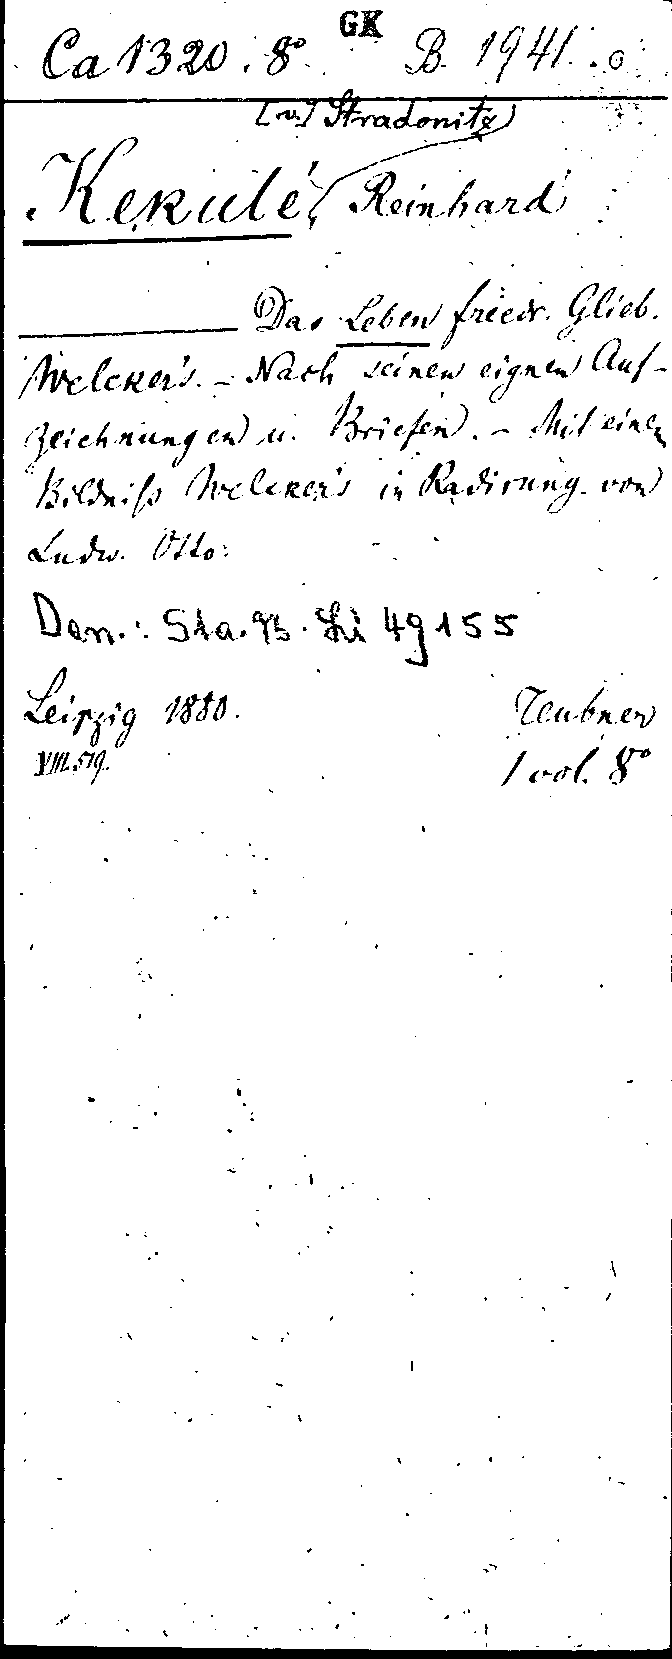 GK
Ca 1320. 8° B. 1941.
[v.] Stradonitz)
Kekulé, Reinhard
Das Leben Friedr. Glieb.
Welcker's. - Nach seinen eignen Auf-
zeichnungen u. Briefen. - Mit einem
Bildniß Welcker's in Radirung von
Ludw. Otto.
Den.: Sta. B. Li 49155
Leipzig 1880. Teubner
VIII. 519. 1 vol. 8°